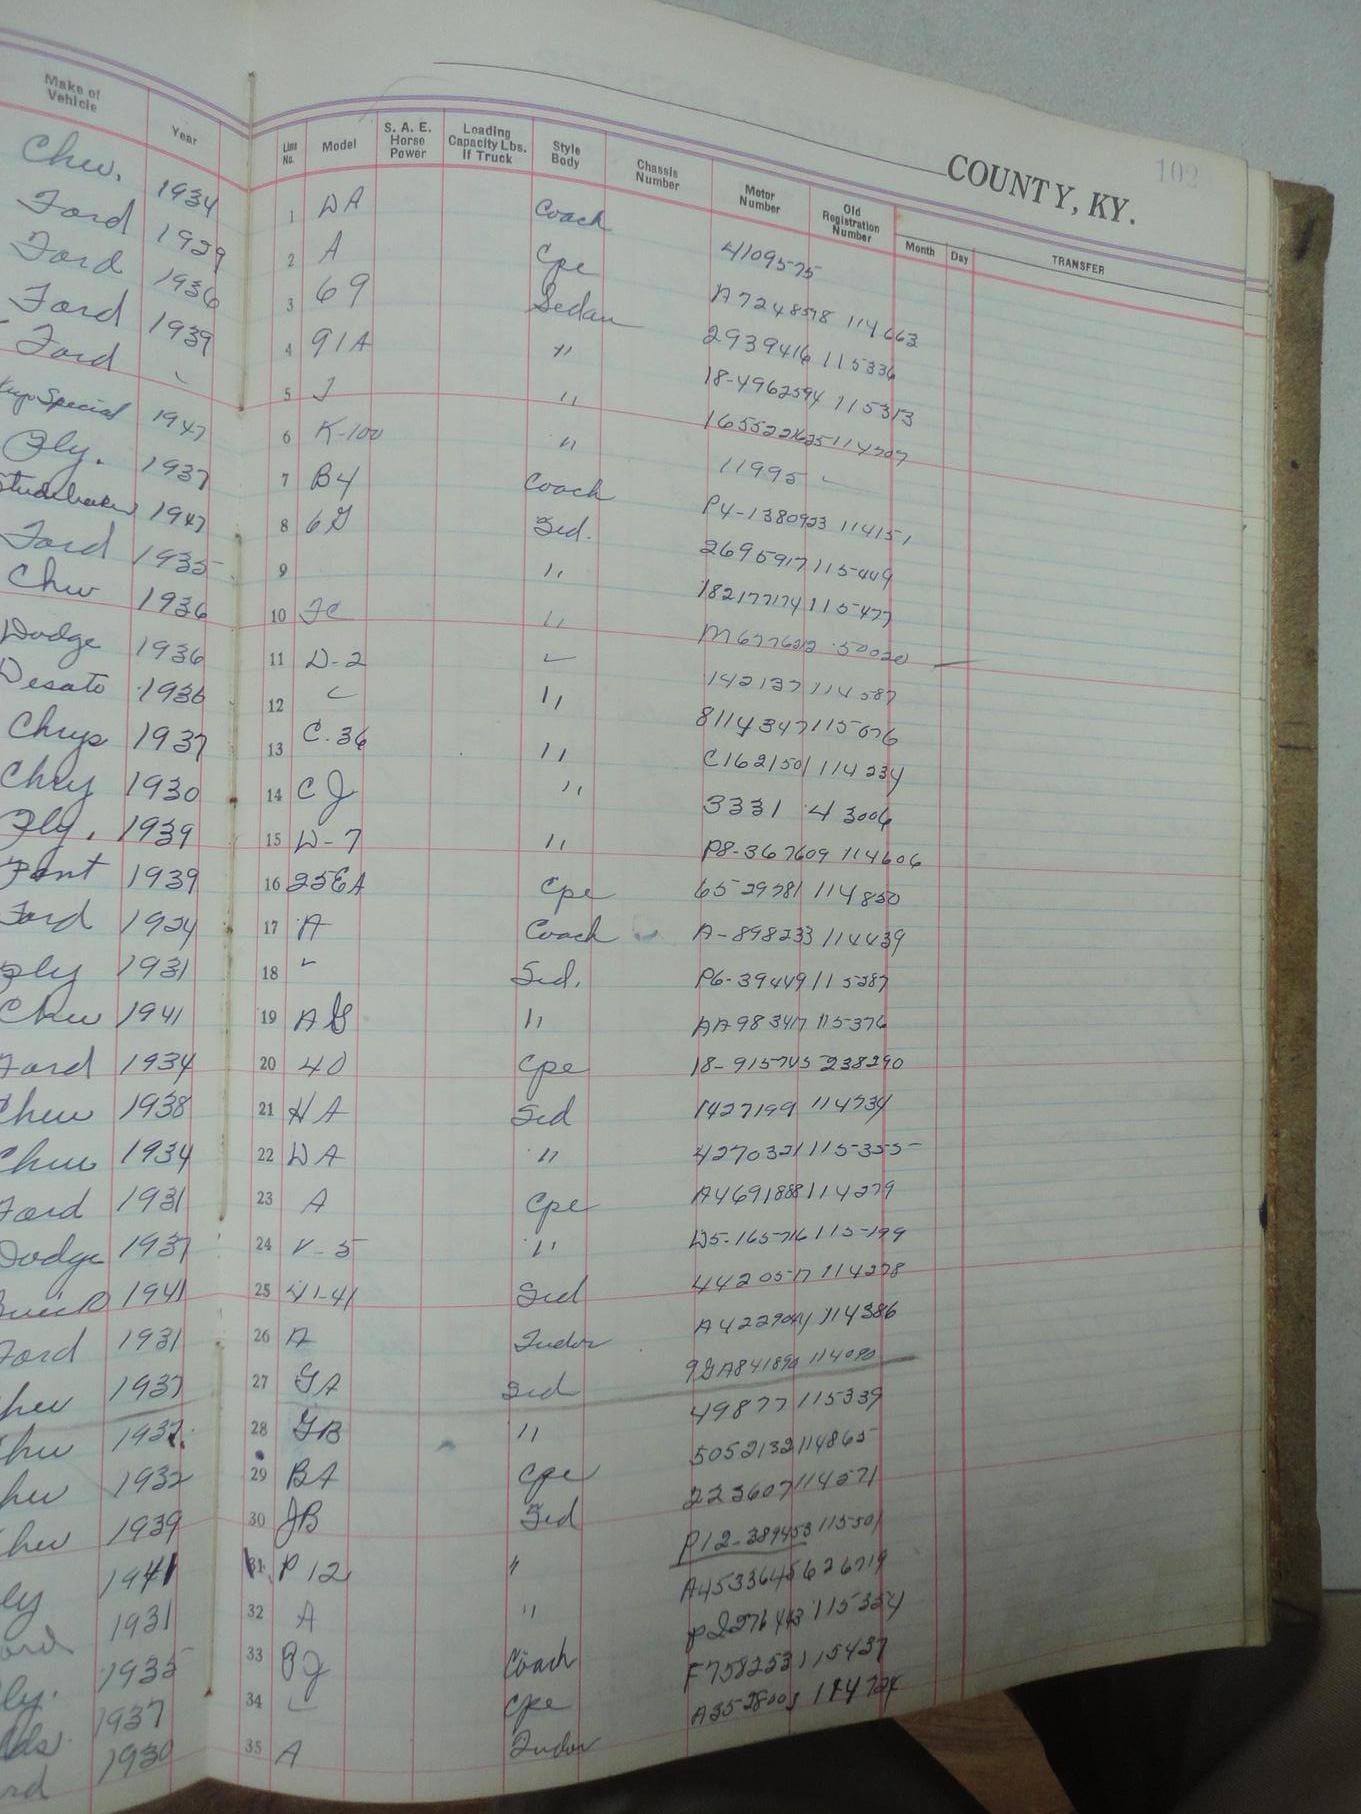 Make of Vehicle | Year | Line No. | Model | S. A. E. Horse Power | Loading Capacity Lbs. If Truck | Style Body | Chassis Number | Motor Number | Old Registration Number | Month | Day | TRANSFER
COUNTY, KY. 102
Chev. 1934 1 DA Coach 4109575
Ford 1929 2 A Cpe A7248578 114663
Ford 1936 3 69 Sedan 2939416 115336
Ford 1939 4 91A " 18-4962594 115313
Ford 5 J " 114707
Special 1947 6 K-100 " 11995
Ply. 1937 7 B4 Coach P4-1380923 114151
Studebaker 1947 8 6G Sed. 2695917 115449
Ford 1935 9 " 182177174 115477
Chev 1936 10 FC " 50020
Dodge 1936 11 D-2 142137 114587
Desato 1936 12 " 8114347 115076
Chrys 1937 13 C.36 " C162150 114234
Chry 1930 14 CJ " 3331 43006
Ply. 1939 15 W-7 " P8-367609 114606
Pont 1939 16 25EA Cpe 65-29781 114850
Ford 1924 17 A Coach A-898233 114439
Ply 1931 18 Sed. P6-39449 115287
Chev 1941 19 AG " AA983417 115376
Ford 1934 20 40 Cpe 18-915745 238290
Chev 1938 21 HA Sed 1427199 114734
Chev 1934 22 DA " 4270321 115355
Ford 1931 23 A Cpe A4691888 114279
Dodge 1937 24 V-5 " D5-165716 115199
Buick 1941 25 41-41 Sed 4420517 114278
Ford 1931 26 A Tudor 114386
Chev 1937 27 GA Sed 9GA841890 114090
Chev 1937. 28 GB " 49877 115339
Chev 1932 29 BA Cpe 5052132 114865
Chev 1939 30 JB Sed 223607 114571
Ply 1941 31 P12 " P12-389453 115501
Ford 1931 32 A " A4533645 626719
Ply. 1935 33 PJ Coach 115354
Olds. 1937 34 Cpe F758253 115437
Ford 1930 35 A Tudor 114724